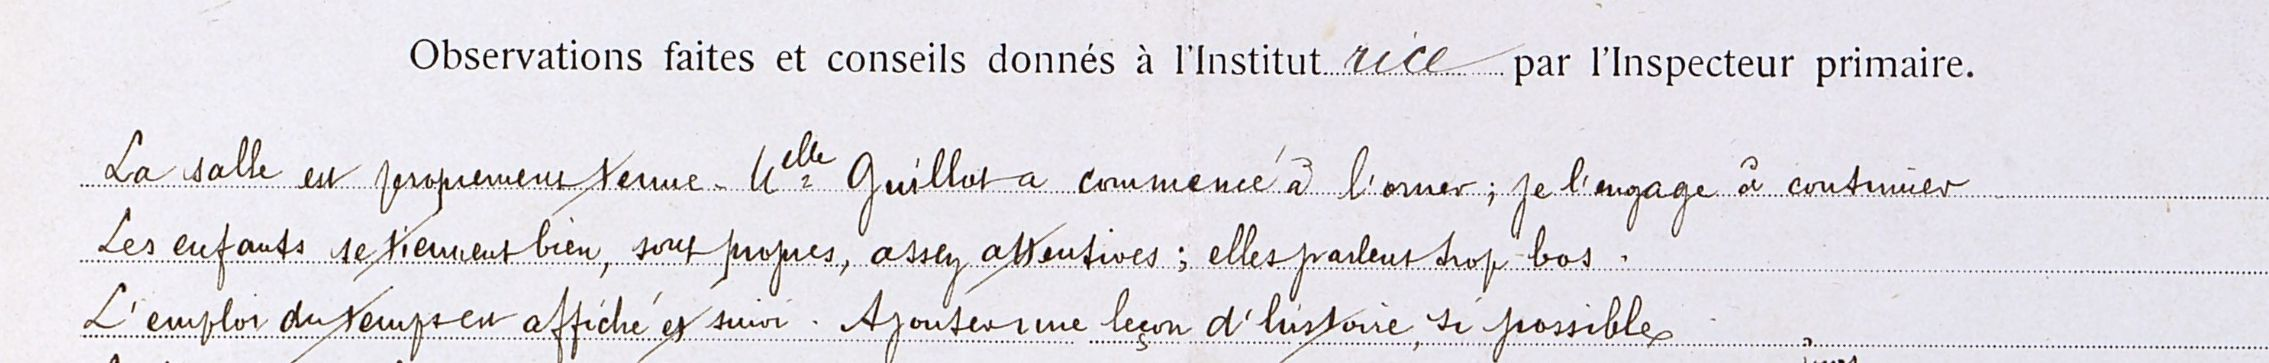 Observations faites et conseils donnés à l'Institutrice par l'Inspecteur primaire.
La salle est proprement tenue. Melle Guillot a commencé à l'orner ; je l'engage à continuer
Les enfants se tiennent bien, sont propres, assez attentives ; elles parlent trop bas.
L'emploi du temps est affiché et suivi. Ajouter une leçon d'histoire, si possible